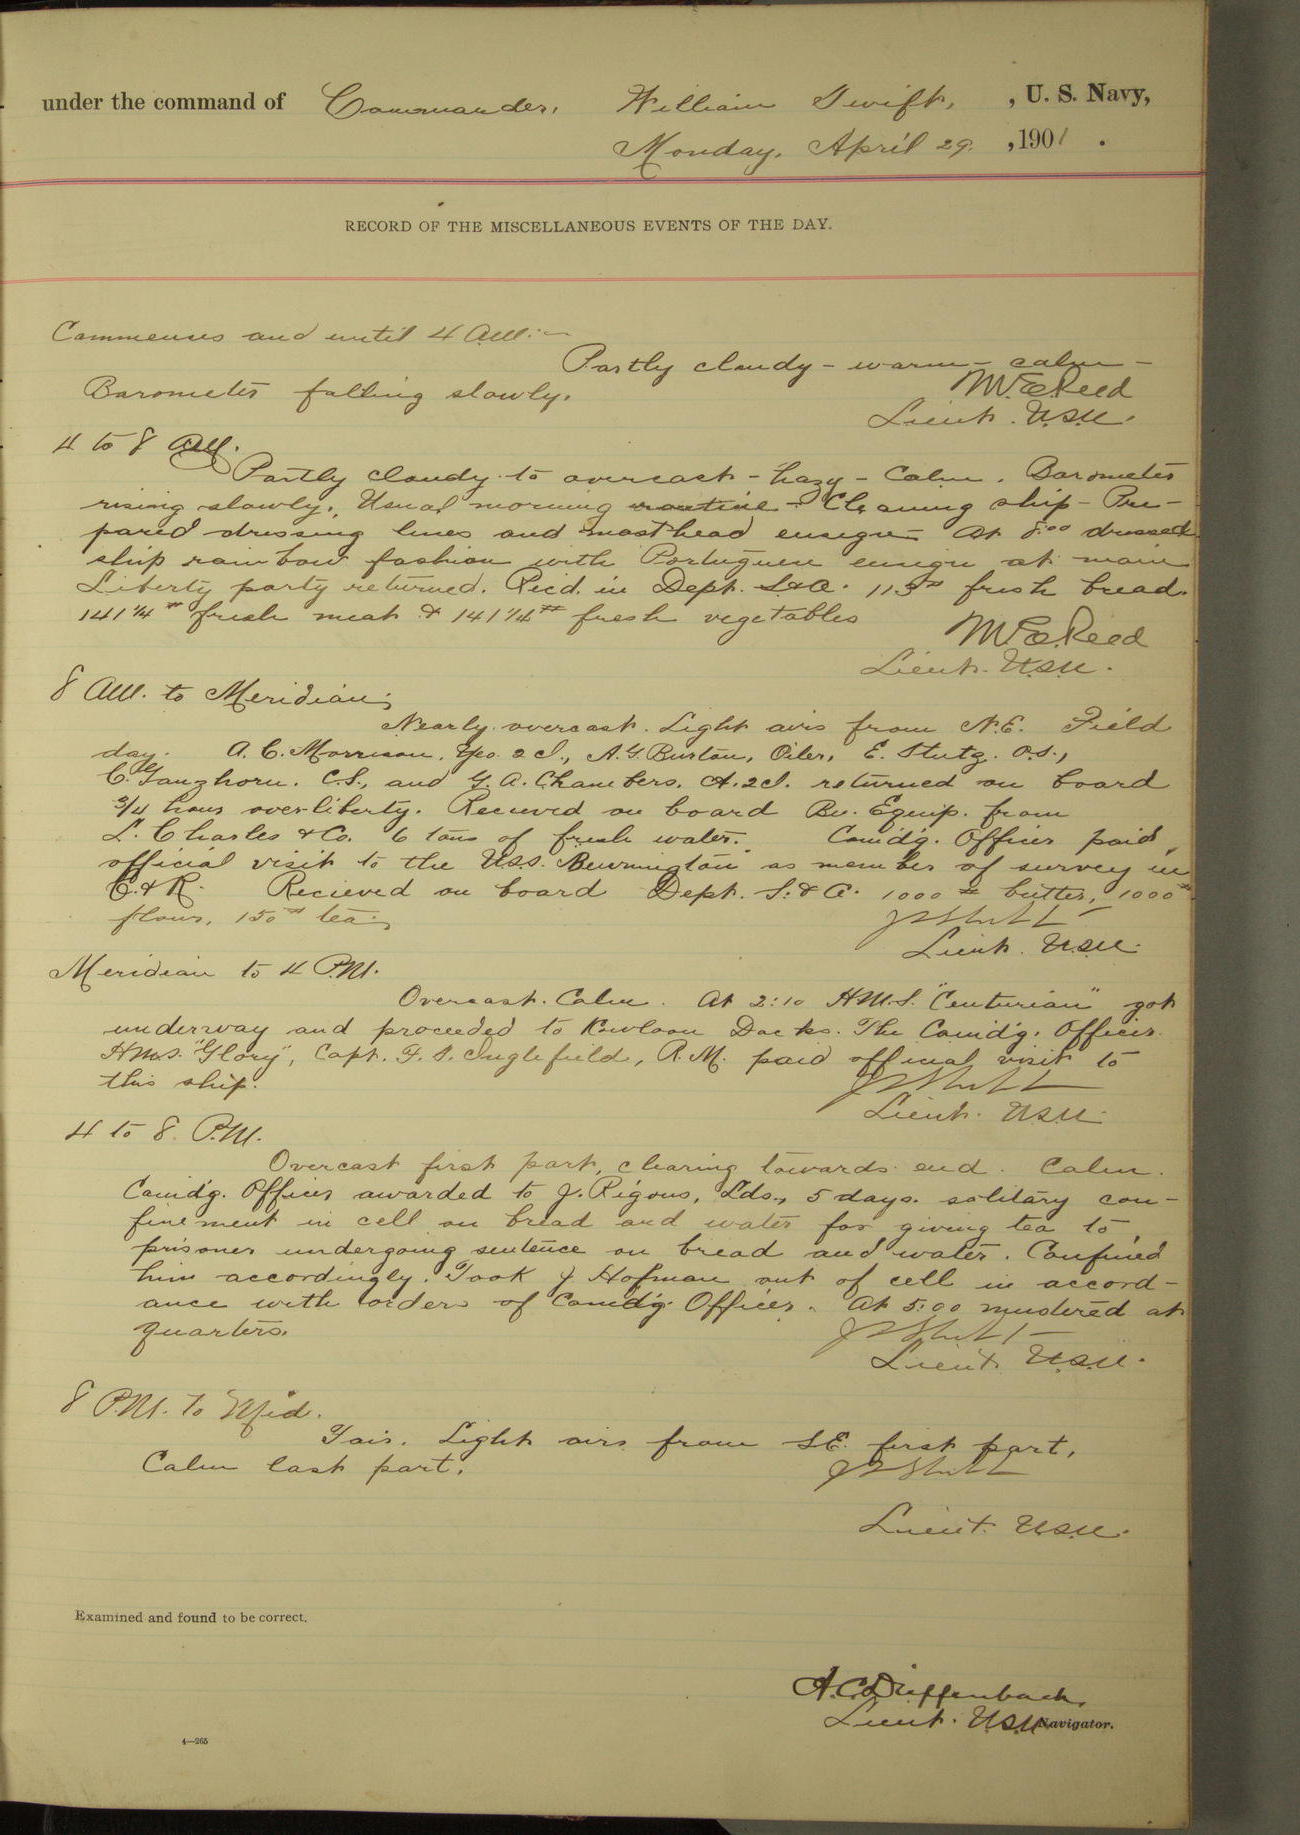 under the command of Commander, William Swift, , U. S. Navy,
Monday, April 29. , 1901 .
RECORD OF THE MISCELLANEOUS EVENTS OF THE DAY.
Commences and until 4 A.M:—
Partly cloudy - warm - calm -
Barometer falling slowly.
M.E. Reed
Lieut. U.S.N.
4 to 8 A.M.
Partly cloudy to overcast - hazy - Calm. Barometer
rising slowly. Usual morning routine - Cleaning ship - Pre-
pared dressing lines and masthead ensign - At 8:00 dressed
ship rainbow fashion with Portuguese ensign at main
Liberty party returned. Recd. in Dept. S&A. 113# fresh bread.
141 1/4# fresh meat & 141 1/4# fresh vegetables
M.E. Reed
Lieut. U.S.N.
8 A.M. to Meridian;
Nearly overcast. Light airs from N.E. Field
day. A. C. Morrison, Yeo. 2d., A. G. Burton, Oiler, E. Stutz. O.S.,
C. Ganzhorn. C.P., and G. A. Chambers. A. 2d. returned on board
3/4 hour over liberty. Recieved on board Bu. Equip. from
L. Charles & Co. 6 tons of fresh water. Comdg. Officer paid
official visit to the U.S.S. Bennington as member of survey in
C. & R. Recieved on board Dept. S. & A. 1000# butter, 1000#
flour, 150# tea;
Lieut. U.S.N.
Meridian to 4 P.M.
Overcast. Calm. At 2:10 H.M.S. "Centurian" got
underway and proceeded to Kowloon Docks. The Comdg. Officer
H.M.S. "Glory", Capt. F. S. Inglefield, R.N. paid official visit to
this ship.
Lieut. U.S.N.
4 to 8 P.M.
Overcast first part, clearing towards end. Calm.
Comdg. Officer awarded to J. Rigous, Lds., 5 days. solitary con-
finement in cell on bread and water for giving tea to
prisoner undergoing sentence on bread and water. Confined
him accordingly. Took J. Hofman out of cell in accord-
ance with orders of Comdg. Officer. At 5:00 mustered at
quarters.
Lieut. U.S.N.
8 P.M. to Mid.
Fair. Light airs from S.E. first part.
Calm last part.
Lieut. U.S.N.
Examined and found to be correct.
A.C. Dieffenbach,
Lieut. U.S.N. Navigator.
4—265